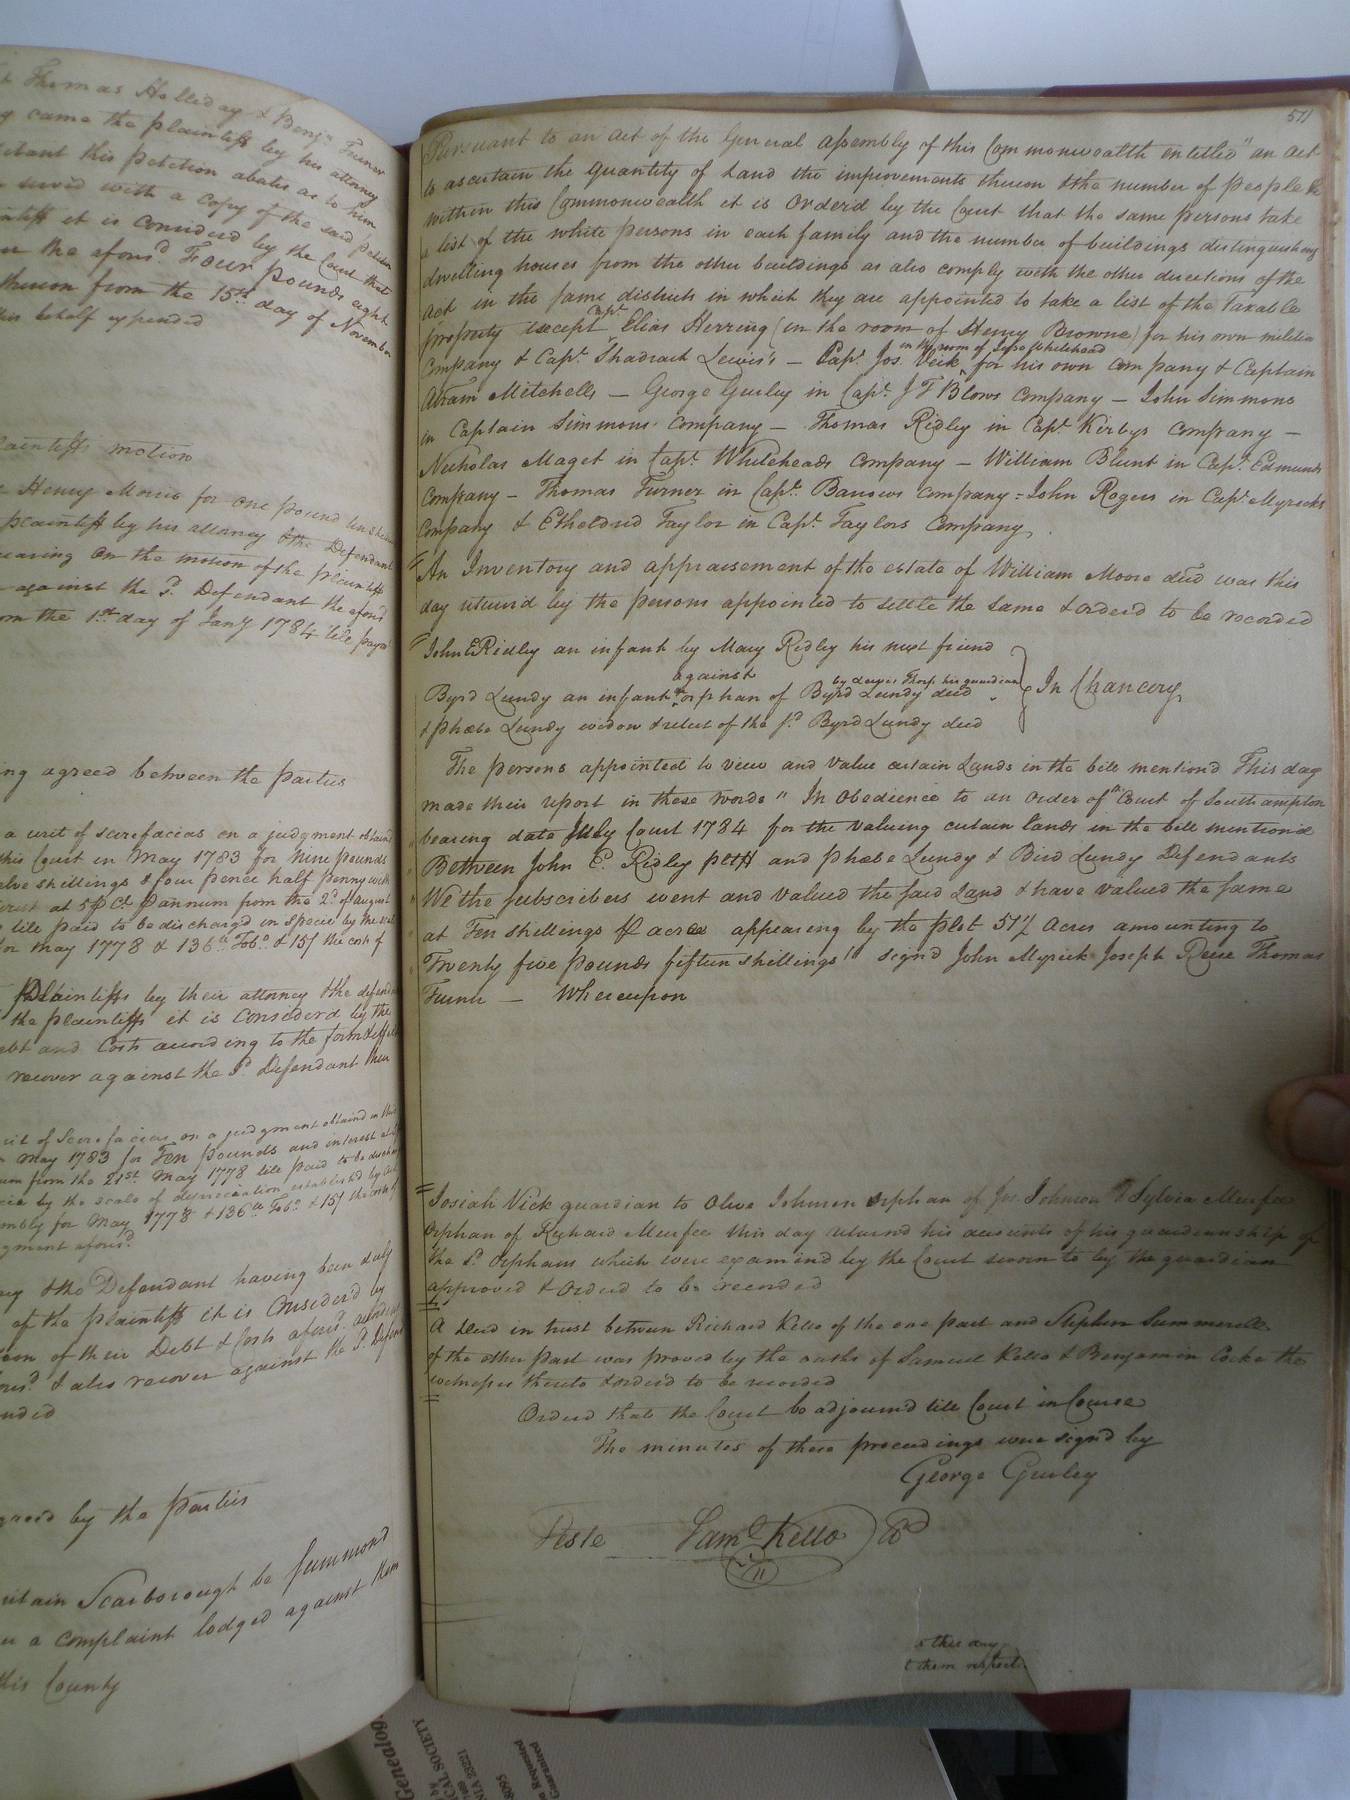 Thomas Holliday & Benja Turner
came the plaintiff by his attorney
this petition abates as to him
served with a copy of the said petition
it is considerd by the Court that
the aforsd Four pounds eight
thereon from the 15th day of November
his behalf expended
plaintiffs motion
Henry Morris for one pound ten
plaintiff by his attorney & the Defendant
on the motion of the plaintiff
against the Sd Defendant the aforsd
from the 1st day of Jany 1784 till payd
being agreed between the parties
a writ of scirefacias on a judgment obtaind
this Court in May 1783 for Nine pounds
twelve shillings & four pence half penny with
at 5 P Ct P annum from the 2d of august
till paid to be discharged in specie by the
for may 1778 & 136 lb Tobo & 15/ the costs of
Plaintiffs by their attorney & the defendant
the plaintiffs it is Considerd by the
Debt and Costs according to the form & effect
recover against the Sd Defendant their
writ of Scirefacias on a judgment obtaind in this
May 1783 for Ten pounds and interest
from the 21st May 1778 till paid to be
by the scale of depreciation established by
for May 1778 & 136 lb Tobo & 15/ the costs of
judgment aforsd
& the Defendant having been duly
of the plaintiffs it is Considerd by
of their Debt & Costs aforsd according
& also recover against the Sd
agreed by the parties
Captain Scarborough be summond
a complaint lodged against them
this County
511
Pursuant to an act of the General assembly of this Commonwealth entitled "an act
to ascertain the Quantity of Land the improvements thereon & the number of people &c
within this Commonwealth it is Orderd by the Court that the same persons take
a list of the white persons in each family and the number of buildings distinguishing
dwelling houses from the other buildings as also comply with the other directions of the
act in the same districts in which they are appointed to take a list of the Taxable
property except Capt Elias Herring (in the room of Henry Browne) for his own militia
Company & Capt. Shadrach Lewis's — Capt. Jos. Vick in the room of Jesse Whitehead for his own Company & Captain
Abram Mitchells — George Gurley in Capt. J T Blows Company — John Simmons
in Captain Simmons' Company — Thomas Ridley in Capt Kirbys Company —
Nicholas Maget in Capt. Whiteheads Company — William Blunt in Capt. Edmunds
Company — Thomas Turner in Capt. Barrows Company = John Rogers in Capt. Myricks
Company & Etheldred Taylor in Capt. Taylors Company.
An Inventory and appraisement of the estate of William Moore decd was this
day returnd by the persons appointed to settle the same & orderd to be recorded
John E Ridley an infant by Mary Ridley his next friend
against
Byrd Lundy an infant & orphan of Byrd Lundy decd by Lewis Thorp his guardian
& Phœbe Lundy widow & relict of the sd Byrd Lundy decd
In Chancery
The persons appointed to view and value certain Lands in the bill mentiond This day
made their report in these words "In Obedience to an order of Court of Southampton
bearing date July Court 1784 for the Valuing certain lands in the bill mention'd
Between John E. Ridley pltff and Phœbe Lundy & Bird Lundy Defendants
We the subscribers went and valued the said Land & have valued the same
at Ten shillings P acres appearing by the plot 51½ acres amounting to
Twenty five pounds fifteen shillings" signd John Myrick Joseph Reese Thomas
Turner — Whereupon
Josiah Vick guardian to Olive Johnson orphan of Jos. Johnson & Sylvia Murfee
Orphan of Richard Murfee this day returnd his accounts of his guardianship of
the Sd Orphans which were examind by the Court sworn to by the guardian
approved & Orderd to be recorded
A Deed in trust between Richard Kello of the one part and Stephen Summerell
of the other part was proved by the oaths of Samuel Kello & Benjamin Cocke the
witnesses thereto & orderd to be recorded
Orderd that the Court be adjournd till Court in Course
The minutes of these proceedings were signd by
George Gurley
Teste Saml Kello
& their any
them respect
Genealog
SOCIETY
23221
8095
Requested
Guaranteed